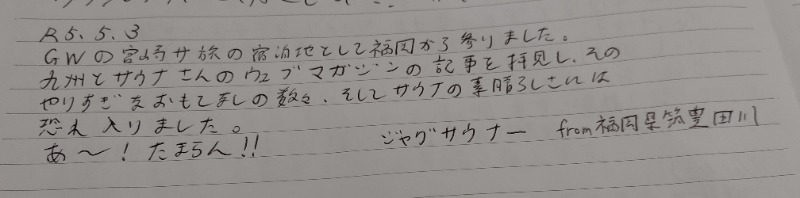 R5.5.3
GWの宮崎サ旅の宿泊地として福岡から参りました。
九州とサウナさんのウェブマガジンの記事を拝見し、その
やりすぎなおもてなしの数々、そしてサウナの素晴らしさには
恐れ入りました。
あ〜!たまらん!! ジャグサウナー from福岡県筑豊田川